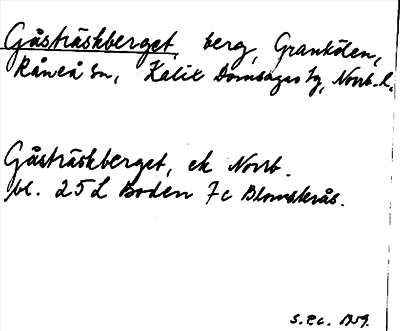 Gåsträskberget, berg, Grankölen,
Råneå sn, Kalix Domsagas tg, Norrb. l.
Gåsträskberget, ek Norrb.
bl. 25 L Boden 7c Blomskrås.
s.e.c. 1959.